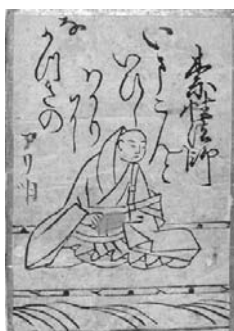 素性法師
いまこんと
いひし
はかりに
な
かつきの
アリ明